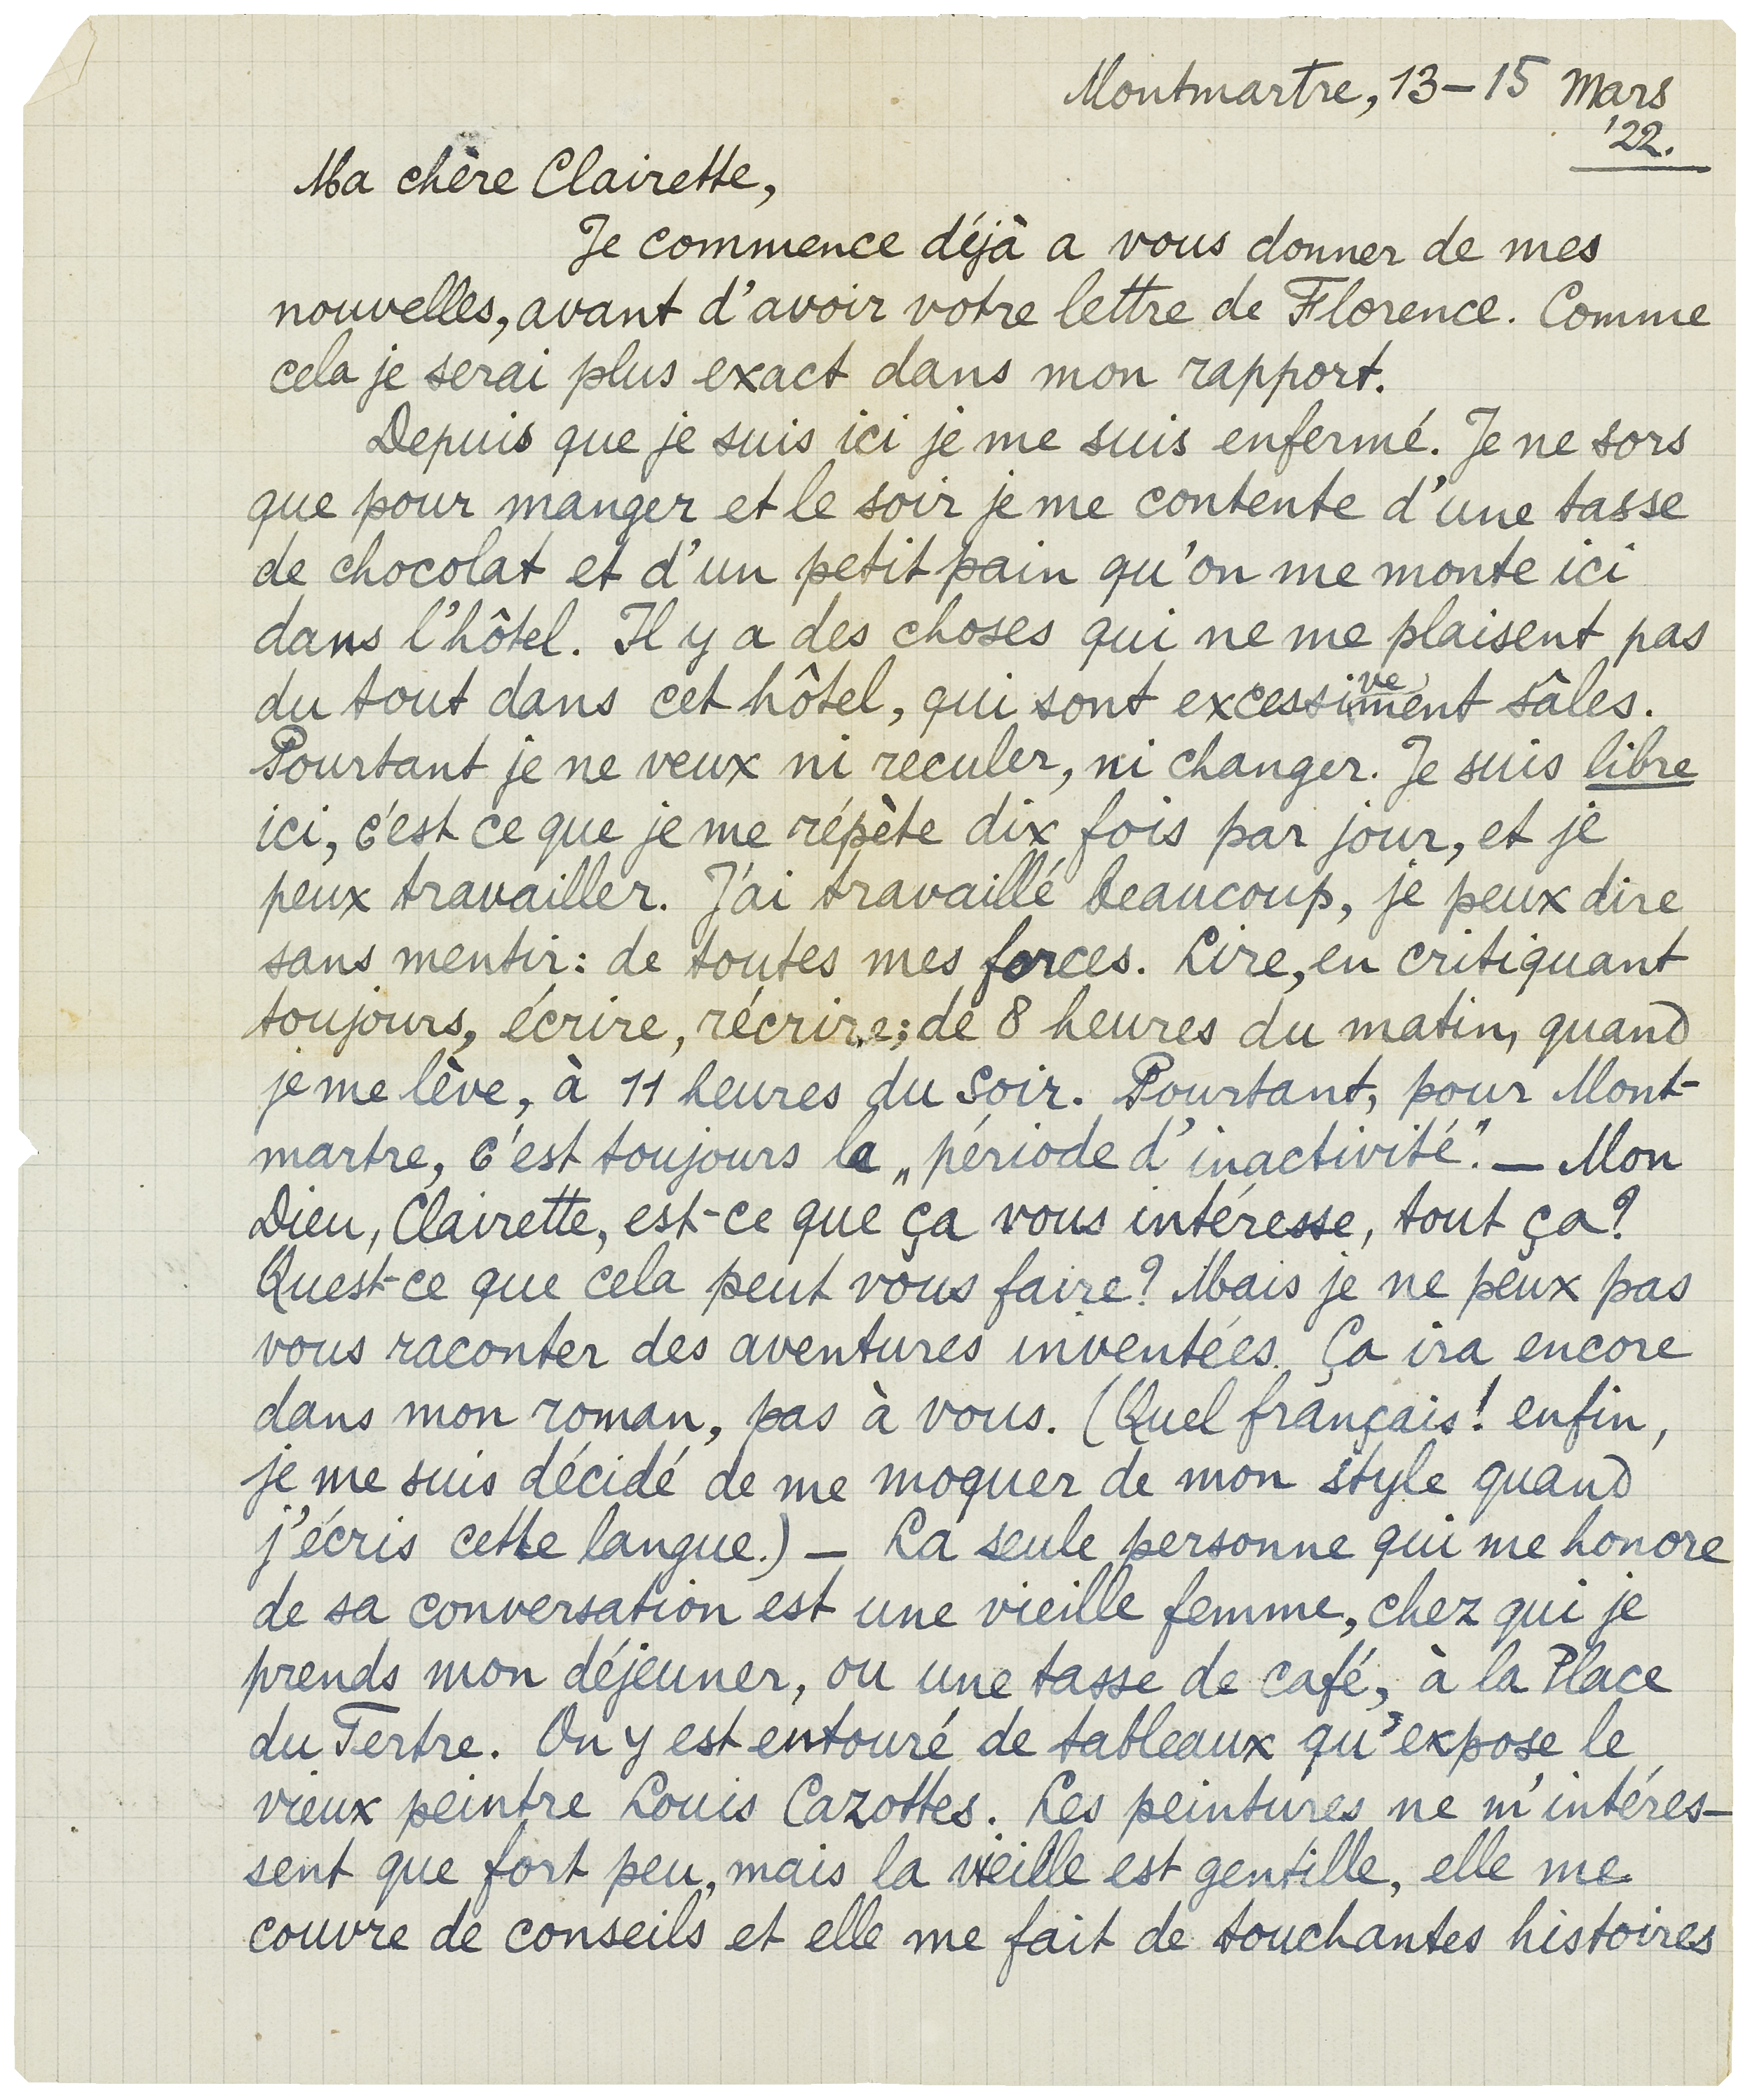 Montmartre, 13–15 Mars
'22.
Ma chère Clairette,
Je commence déjà a vous donner de mes
nouvelles, avant d'avoir votre lettre de Florence. Comme
cela je serai plus exact dans mon rapport.
Depuis que je suis ici je me suis enfermé. Je ne sors
que pour manger et le soir je me contente d'une tasse
de chocolat et d'un petit pain qu'on me monte ici
dans l'hôtel. Il y a des choses qui ne me plaisent pas
du tout dans cet hôtel, qui sont excessivement sâles.
Pourtant je ne veux ni reculer, ni changer. Je suis libre
ici, c'est ce que je me répète dix fois par jour, et je
peux travailler. J'ai travaillé beaucoup, je peux dire
sans mentir: de toutes mes forces. Lire, en critiquant
toujours, écrire, récrire; de 8 heures du matin, quand
je me lève, à 11 heures du soir. Pourtant, pour Mont-
martre, c'est toujours la „période d'inactivité". — Mon
Dieu, Clairette, est-ce que ça vous intéresse, tout ça?
Quest-ce que cela peut vous faire? Mais je ne peux pas
vous raconter des aventures inventées. Ça ira encore
dans mon roman, pas à vous. (Quel français! enfin,
je me suis décidé de me moquer de mon style quand
j'écris cette langue.) — La seule personne qui me honore
de sa conversation est une vieille femme, chez qui je
prends mon déjeuner, ou une tasse de café, à la Place
du Tertre. On y est entouré de tableaux qu'expose le
vieux peintre Louis Cazottes. Les peintures ne m'intéres-
sent que fort peu, mais la vieille est gentille, elle me
couvre de conseils et elle me fait de touchantes histoires